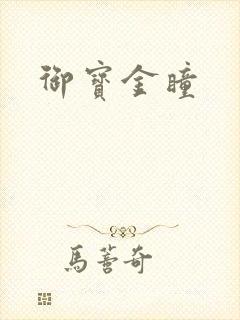 御寶金瞳
馬奇